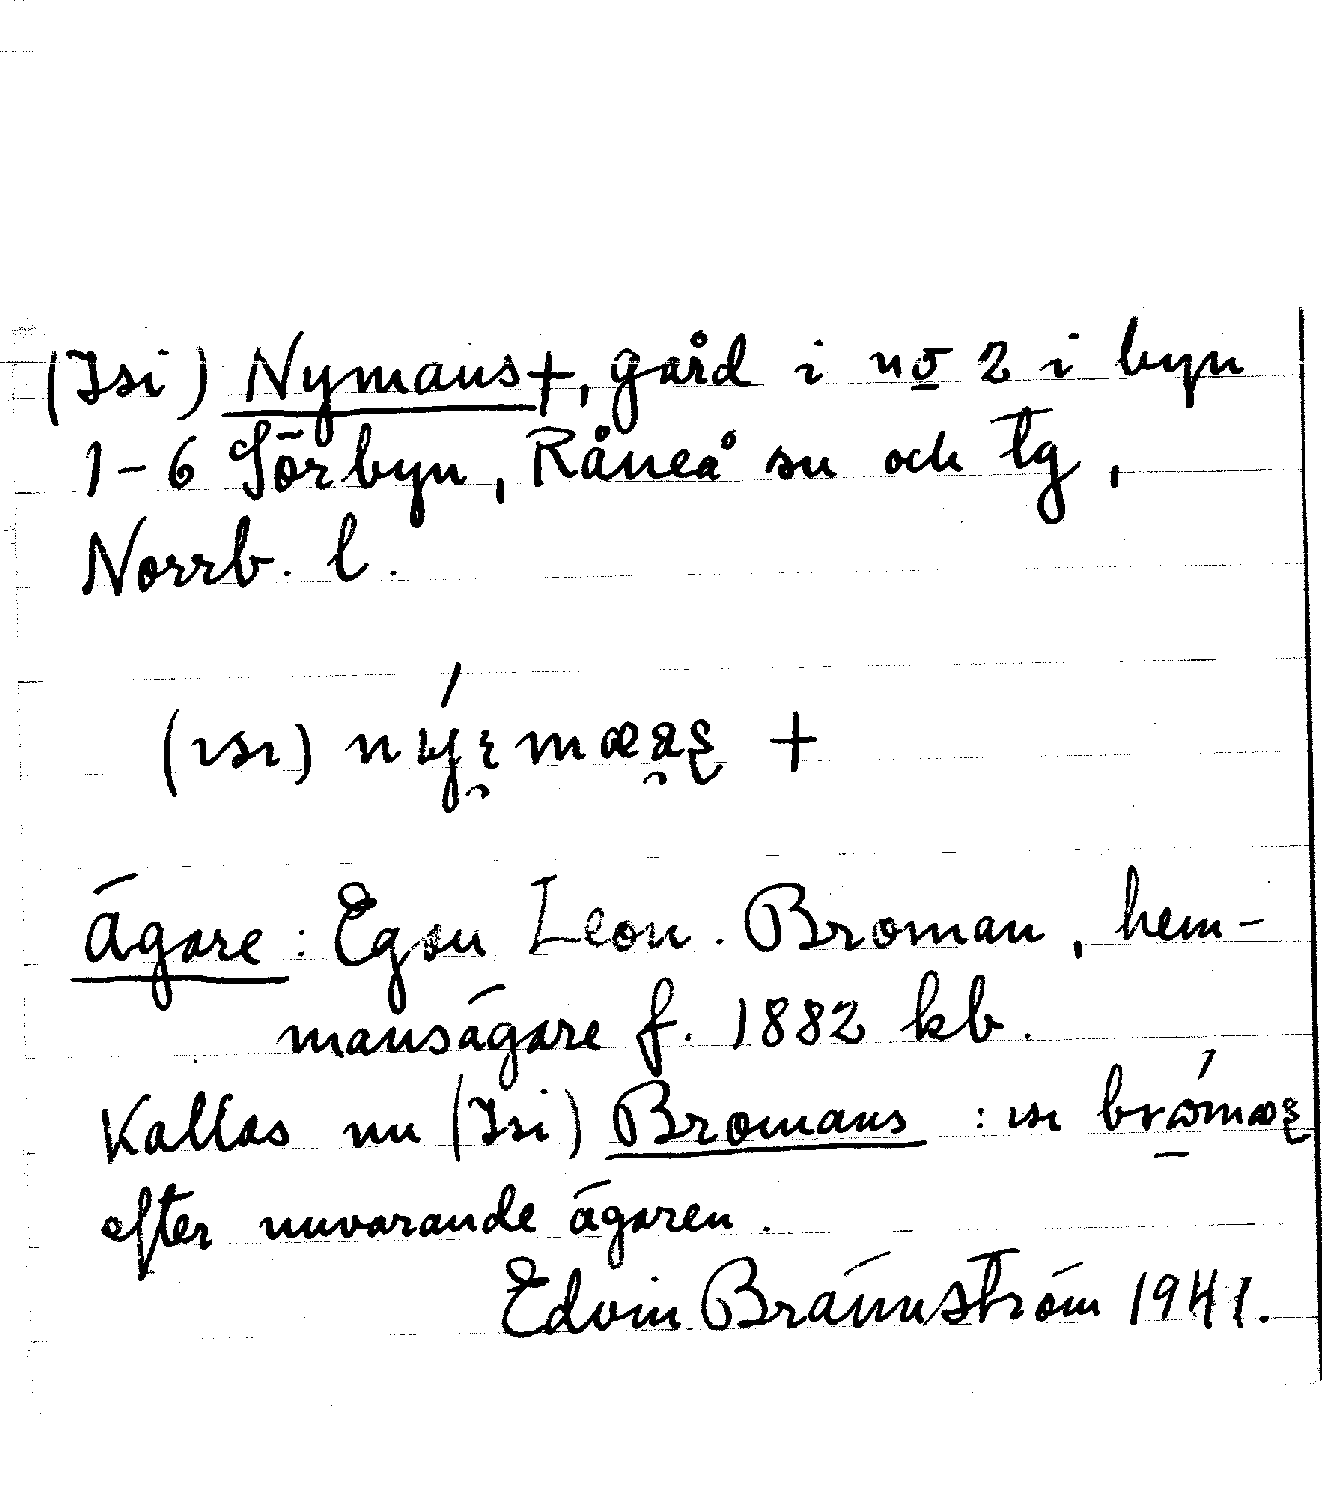 (Isi) Nymans +, gård i no 2 i byn
1-6 Sörbyn, Råneå sn och tg,
Norrb. l.
(ısı) +
Ägare: Egon Leon. Broman, hem-
mansägare f. 1882 kb.
Kallas nu (Isi) Bromans : ısı
efter nuvarande ägaren.
Edvin Brännström 1941.